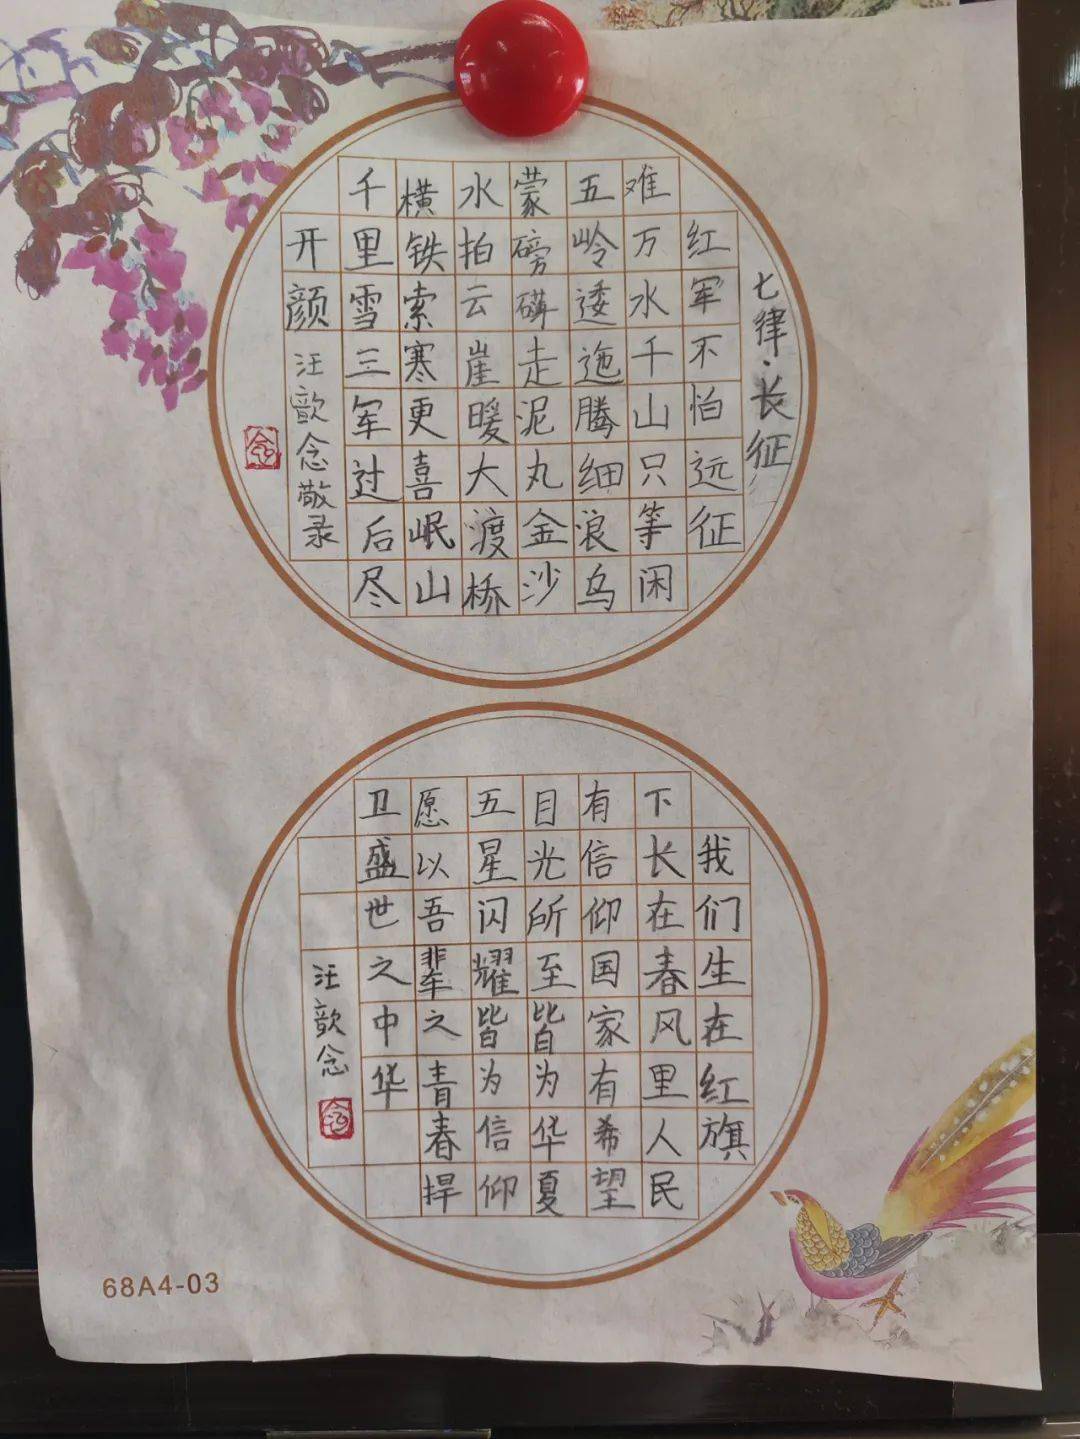 七律·长征
红军不怕远征
难万水千山只等闲
五岭逶迤腾细浪乌
蒙磅礴走泥丸金沙
水拍云崖暖大渡桥
横铁索寒更喜岷山
千里雪三军过后尽
开颜
汪歆念敬录
念
我们生在红旗
下长在春风里人民
有信仰国家有希望
目光所至皆为华夏
五星闪耀皆为信仰
愿以吾辈之青春捍
卫盛世之中华
汪歆念
念
68A4-03